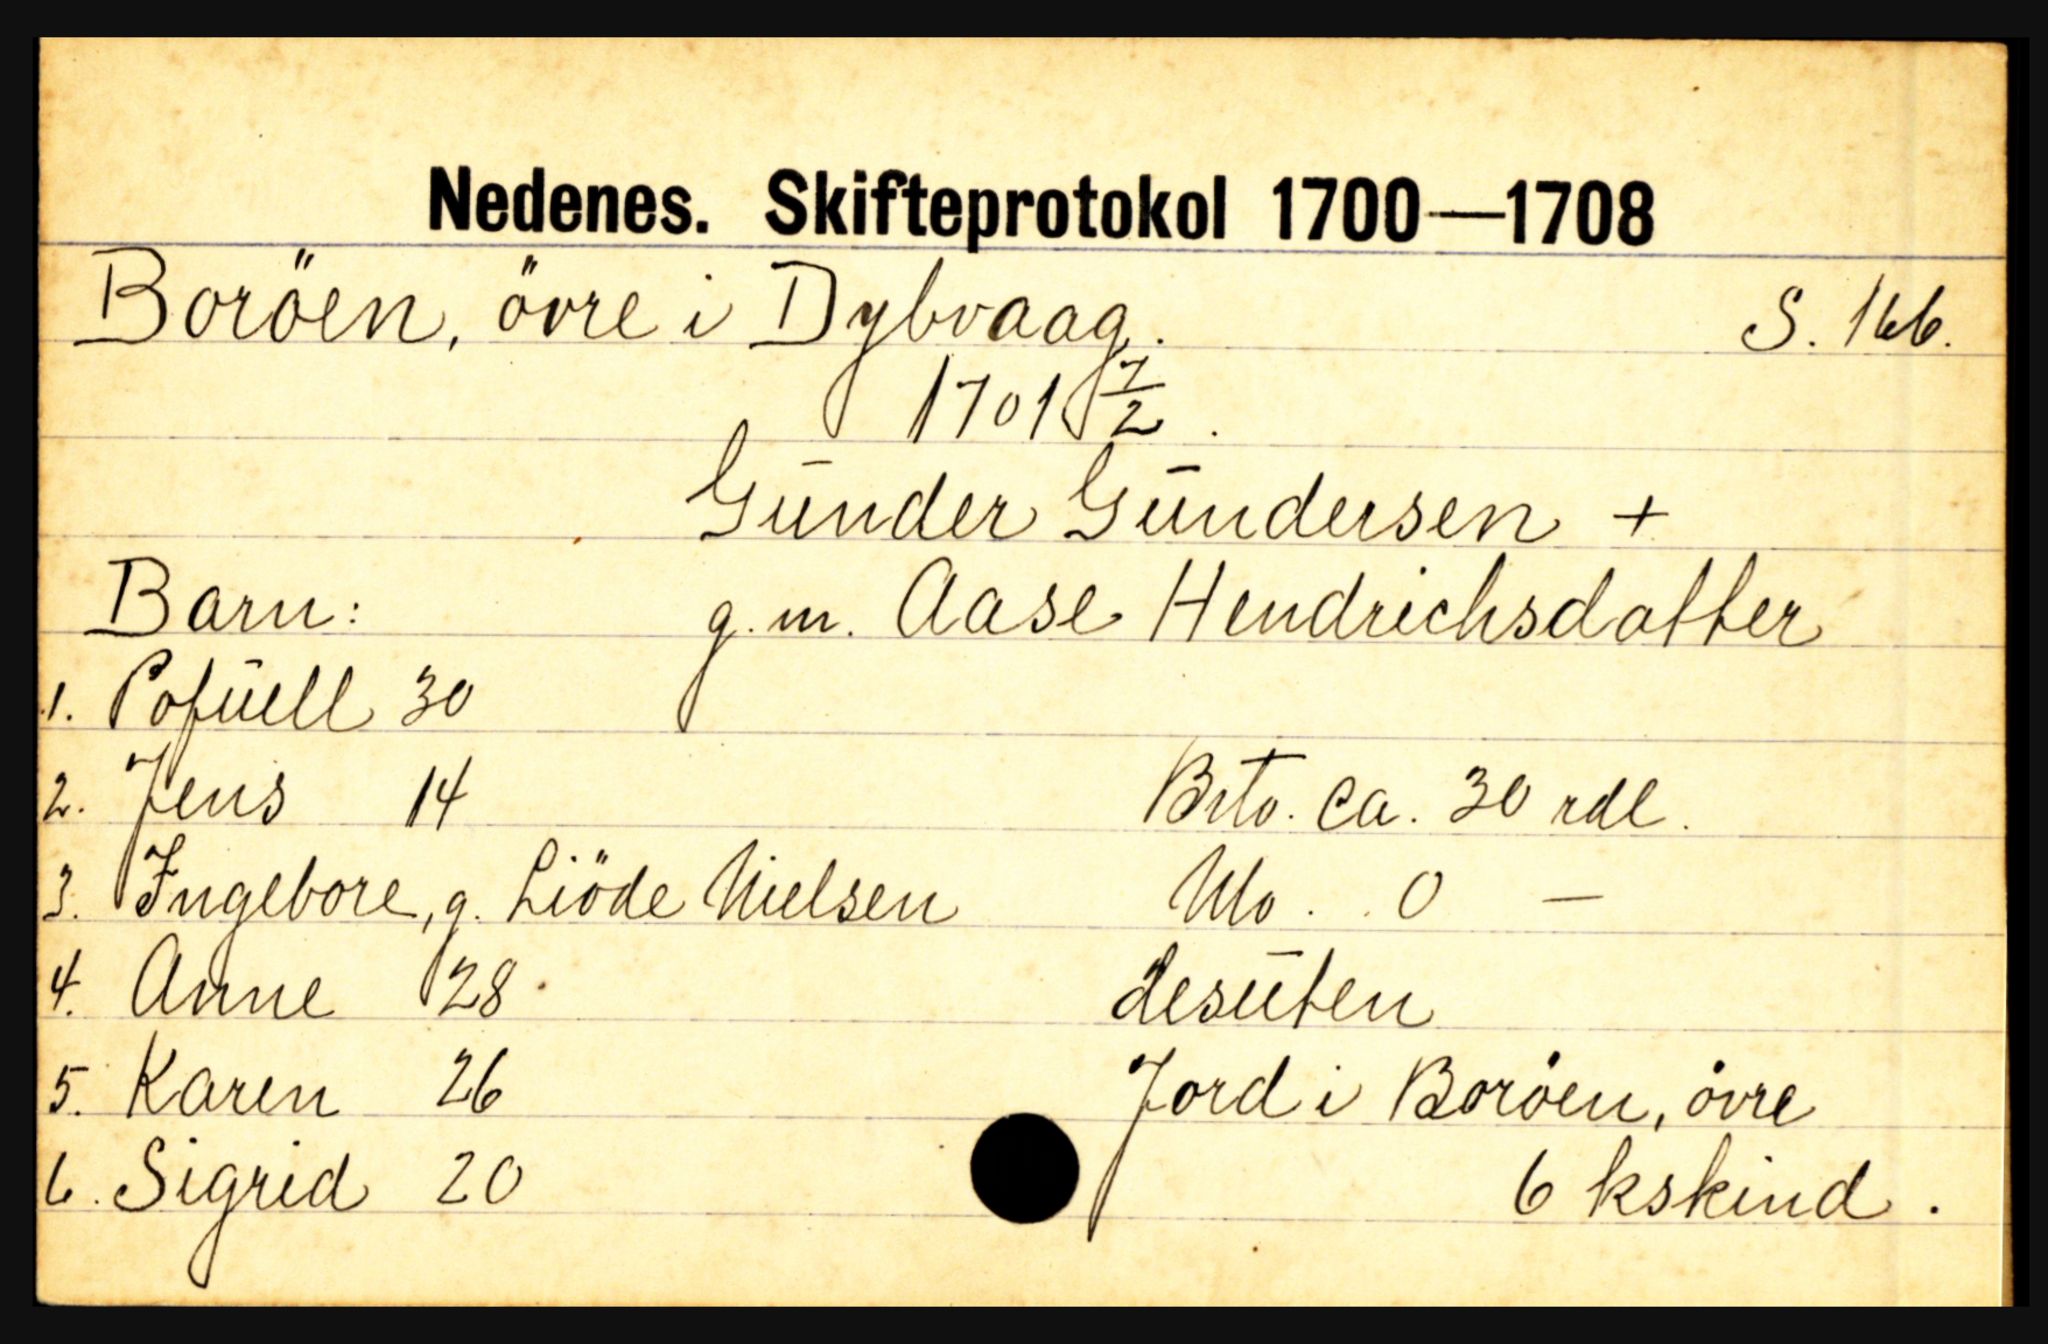 Nedenes. Skifteprotokol 1700—1708
Boröen, övre i Dybvaag. S. 166.
1701 7/2.
Gūnder Gūndersen +
Barn: g.m. Aase Hendrichsdatter
1. Pofūell 30
2. Jens 14 Brto. ca. 30 rdl.
3. Ingebore, g. Liöde Nielsen Nto. 0 —
4. Anne 28 desūten
5. Karen 26 Jord i Boröen, övre
6. Sigrid 20 6 kskind.